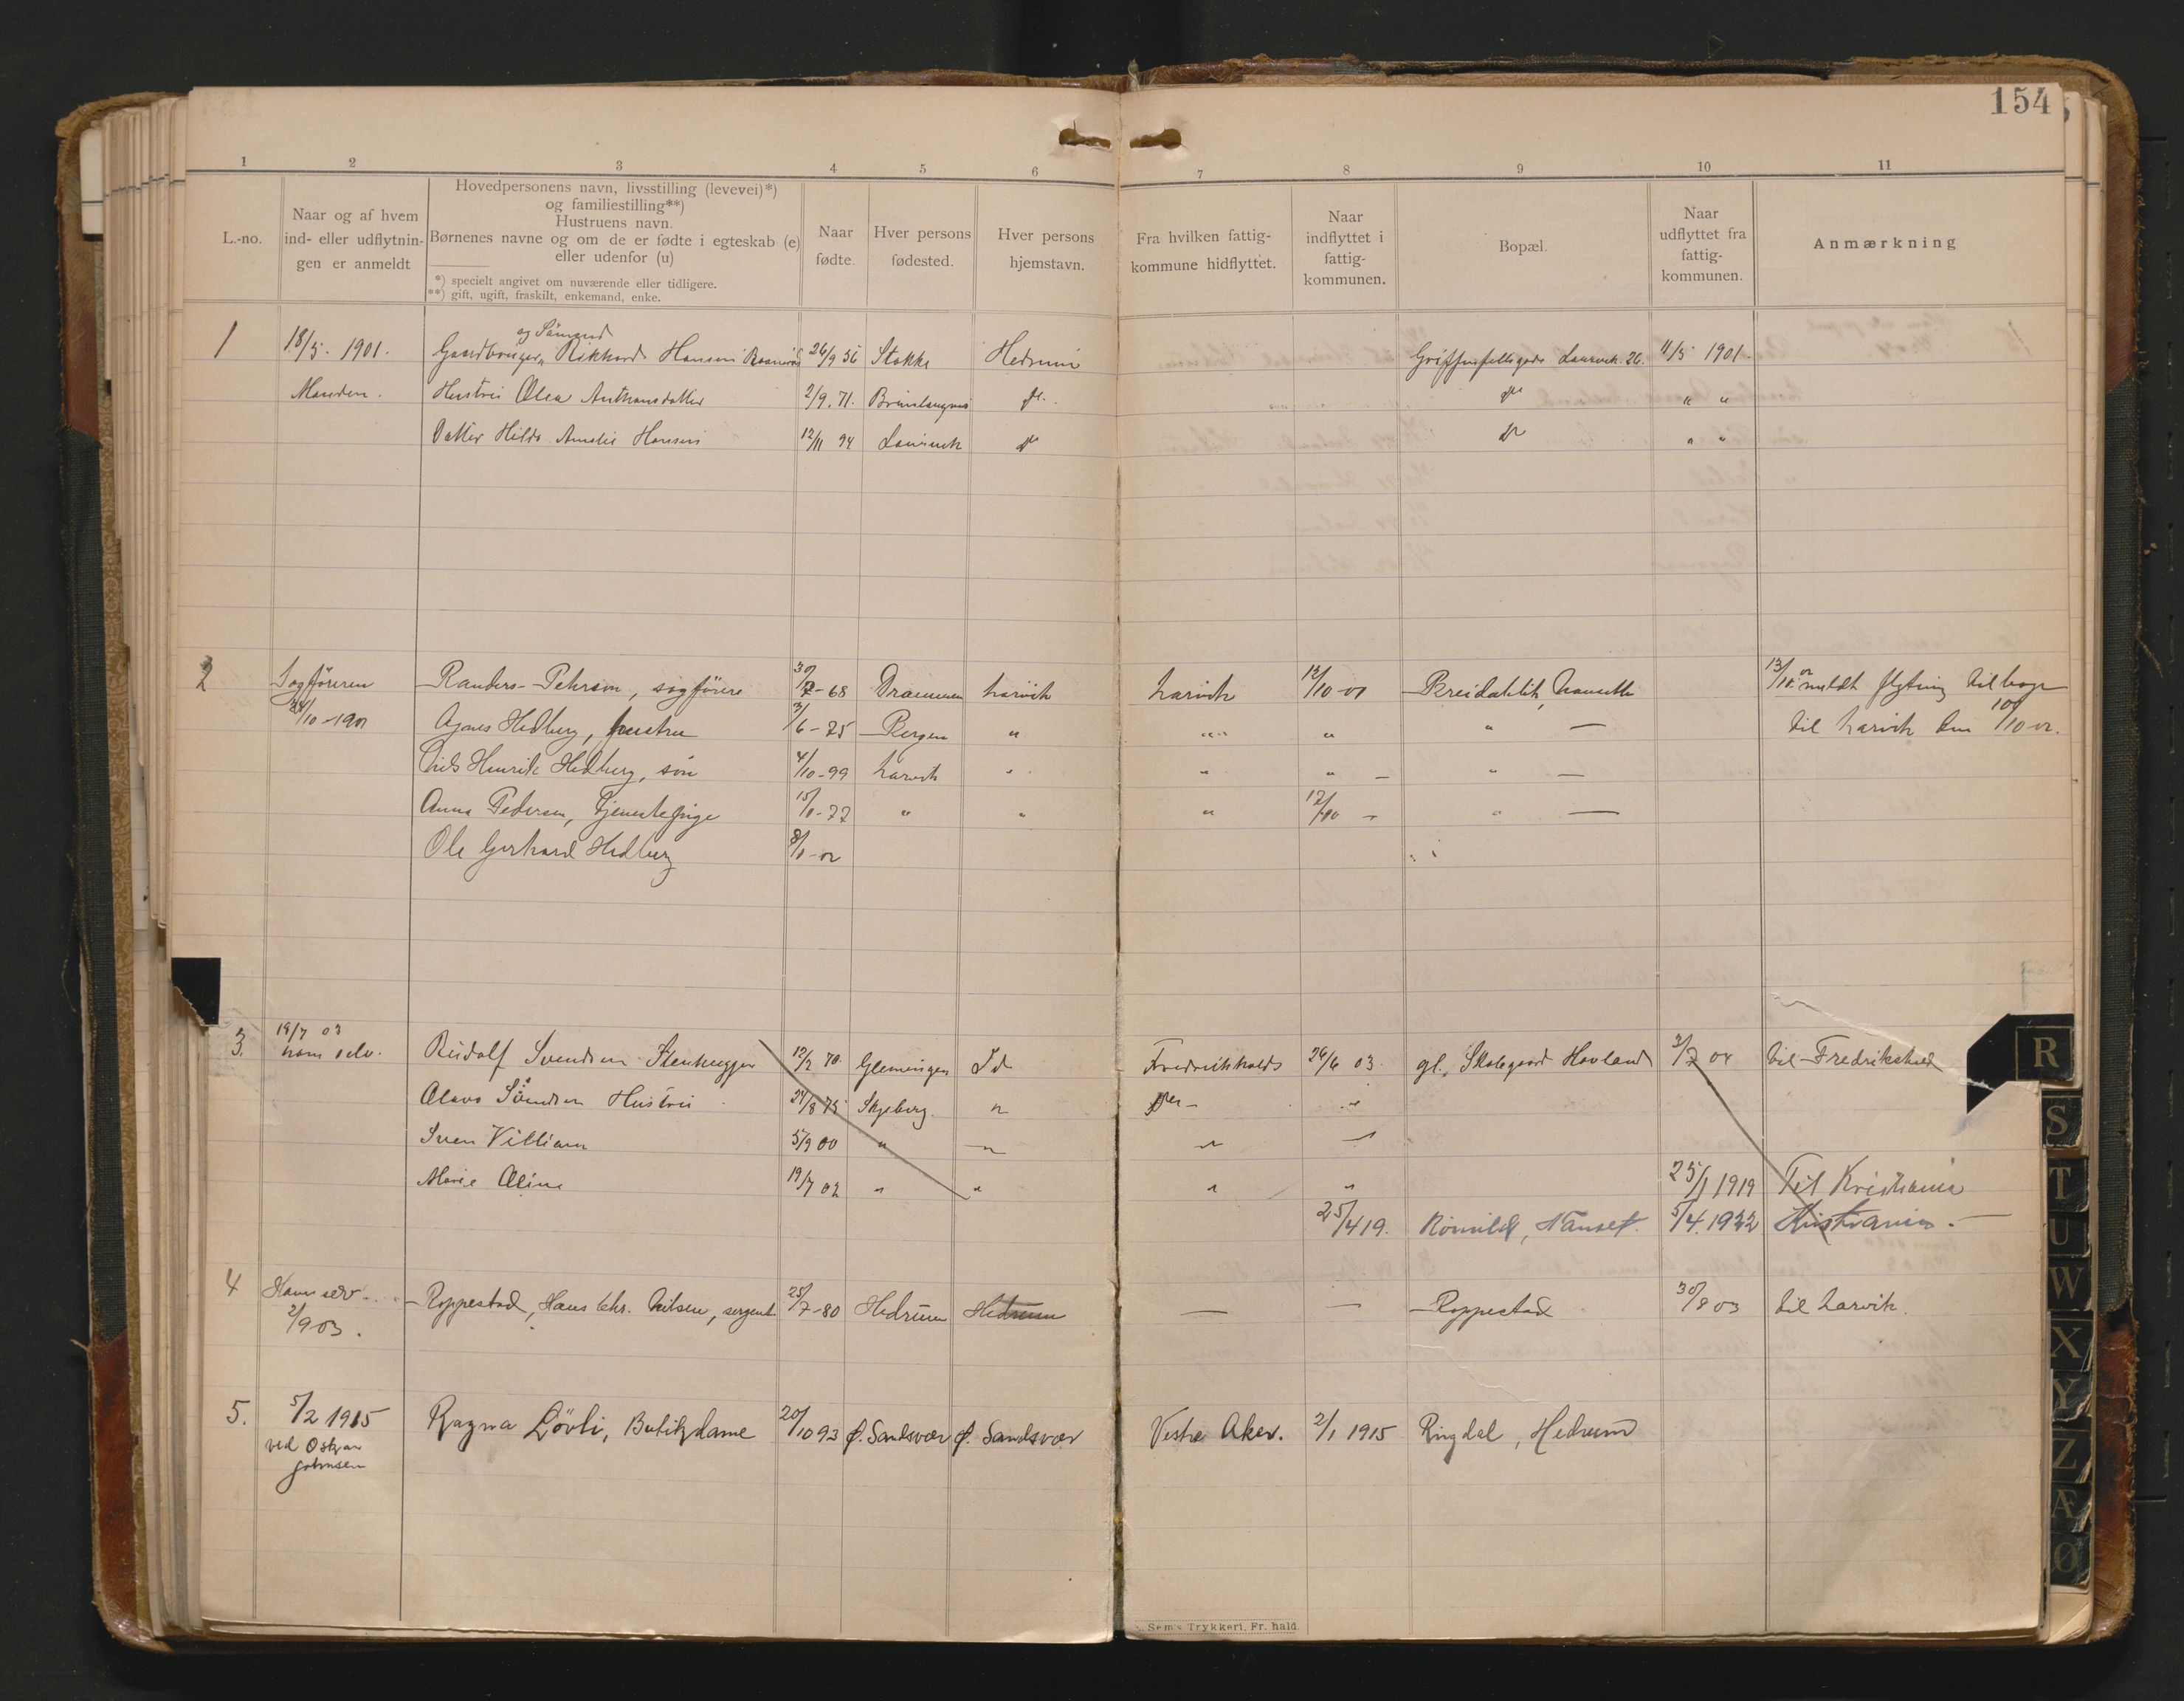 154
1 2 3 4 5 6 7 8 9 10 11
L.-no.
Naar og af hvem
ind- eller udflytnin-
gen er anmeldt
Hovedpersonens navn, livsstilling (levevei)*)
og familiestilling**)
Hustruens navn.
Børnenes navne og om de er fødte i egteskab (e)
eller udenfor (u)
*) specielt angivet om nuværende eller tidligere.
**) gift, ugift, fraskilt, enkemand, enke.
Naar
fødte.
Hver persons
fødested.
Hver persons
hjemstavn.
Fra hvilken fattig-
kommune hidflyttet.
Naar
indflyttet i
fattig-
kommunen.
Bopæl.
Naar
udflyttet fra
fattig-
kommunen.
Anmærkning
og Sömand
1 18/5. 1901. Gaardbruger, Rikhard Hansen 26/9 56 Stokke Hedrum Laurvik. 26. 11/5 1901.
Manden. Hustru Olea Anthonsdatter 2/9. 71. Brunlangnes do. do " "
Datter Hilda Amalie Hansen 12/11 94 Laurvik do do " "
2 Sagföreren Randers-Pehrson, sagförere 30/7-68 Drammen Larvik Larvik 12/10-01 Breidablik, Nanseth 13/10.02 meldt flytning tilbage
10-1901 Agnes Hedberg, hustru 3/6-75 Bergen " " " " — til Larvik den 10/10 02.
Nils Henrik Hedberg, sön 4/10-99 Larvik " " " — " —
Anna Pedersen, Tjenestepige 15/1-77 " " " 12/10 — " —
Ole Gerhard Hedberg 8/1-02 "
3. 19/7 03
ham selv. Rudolf Svendsen Stenhugger 12/2 70. Glemmingen Id Fredrikshalds 26/6 03. gl. Skolegaard Hovland 3/7 04 til Fredrikshald
Olava Svendsen Hustru 24/8 75 Skjeberg. " do — "
Sven Villiam 5/9 00 " " " "
Marie Oline 19/7 02 " " " " 25/1 1919 Til Kristiania
25/4 19. Römild, Nanset. 5/4. 1922 Kristiania. —
4 Ham selv — Roppestad, Hans Chr. Nilsen, sergent. 25/7-80 Hedrum Hedrum — — Roppestad 30/8 03 til Larvik.
2/9 03.
5. 5/2 1915 Ragna Lövli, Butikdame 20/10 93 Ø. Sandsvær Ø. Sandsvær Vestre Aker. 2/1 1915 Ringdal, Hedrum
ved Oskar
Johnsen
Sems Trykkeri, Fr. hald.
R
S
T
U
W
X
Y
Z
Æ
Ø